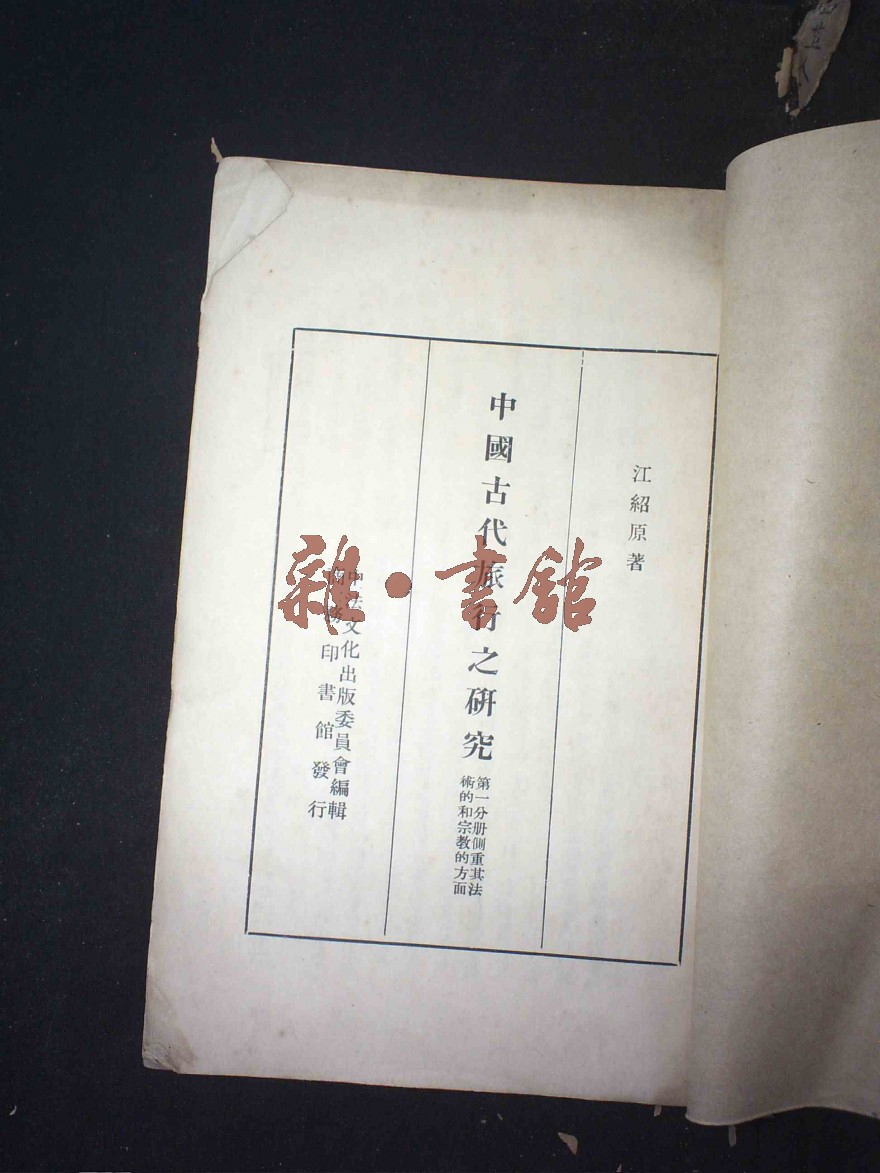 江紹原著
中國古代旅行之研究
第一分册側重其法
術的和宗教的方面
中法文化出版委員會編輯
商務印書館發行
雜·書館